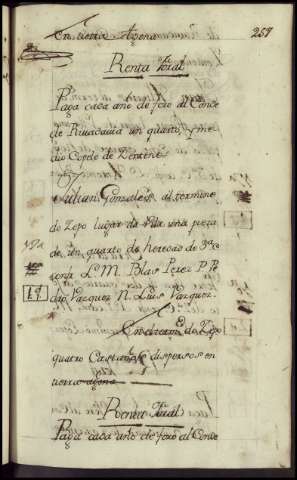 En tierra Agena
259
Renta Foral
Paga cada año de foro al Conde
de Rivadavia un quarto, y me-
dio Copelo de Zenteno
Julian Gonzales, al termino
do Zepo lugar da Vila una pieza
de un quarto de heredad de 3ª c
confa L. M. Blas Perez P. Pe
dro Vazquez N. Luis Vazquez.
19
En cierra do Zepo
quatro Castaños dispersos en
tierra agena
Renta Foral
Paga cada año de foro al Conde